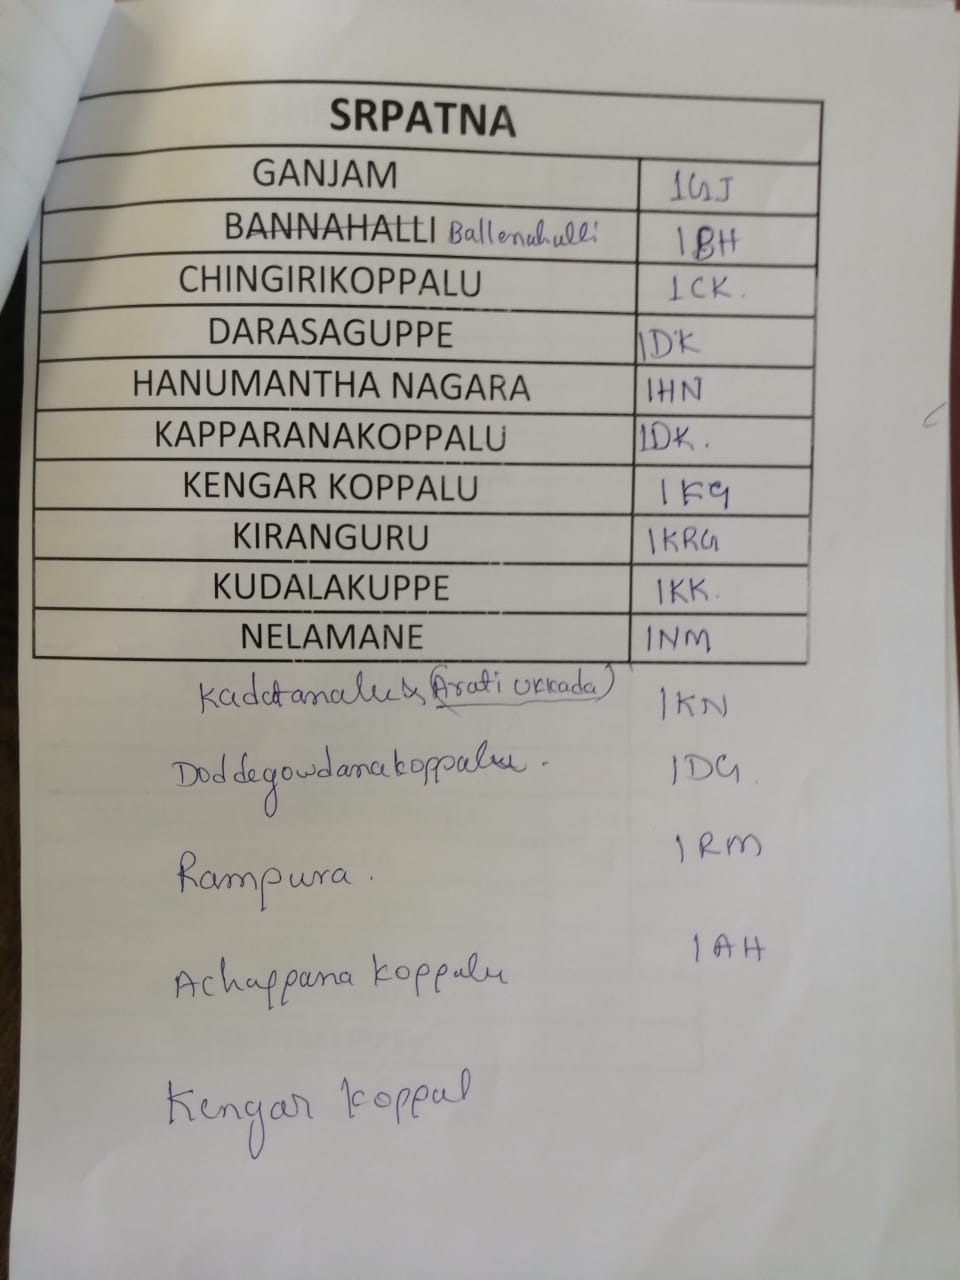 SRPATNA
GANJAM 1GJ
BANNAHALLI Ballenahulli 1BH
CHINGIRIKOPPALU 1CK.
DARASAGUPPE 1DK
HANUMANTHA NAGARA 1HN
KAPPARANAKOPPALU 1DK.
KENGAR KOPPALU 1KG
KIRANGURU 1KRG
KUDALAKUPPE 1KK.
NELAMANE 1NM
(Arati Ukkada) 1KN
Doddegowdanakoppalu. 1DG.
Rampura. 1RM
Achappana koppalu 1AH
Kengar koppal